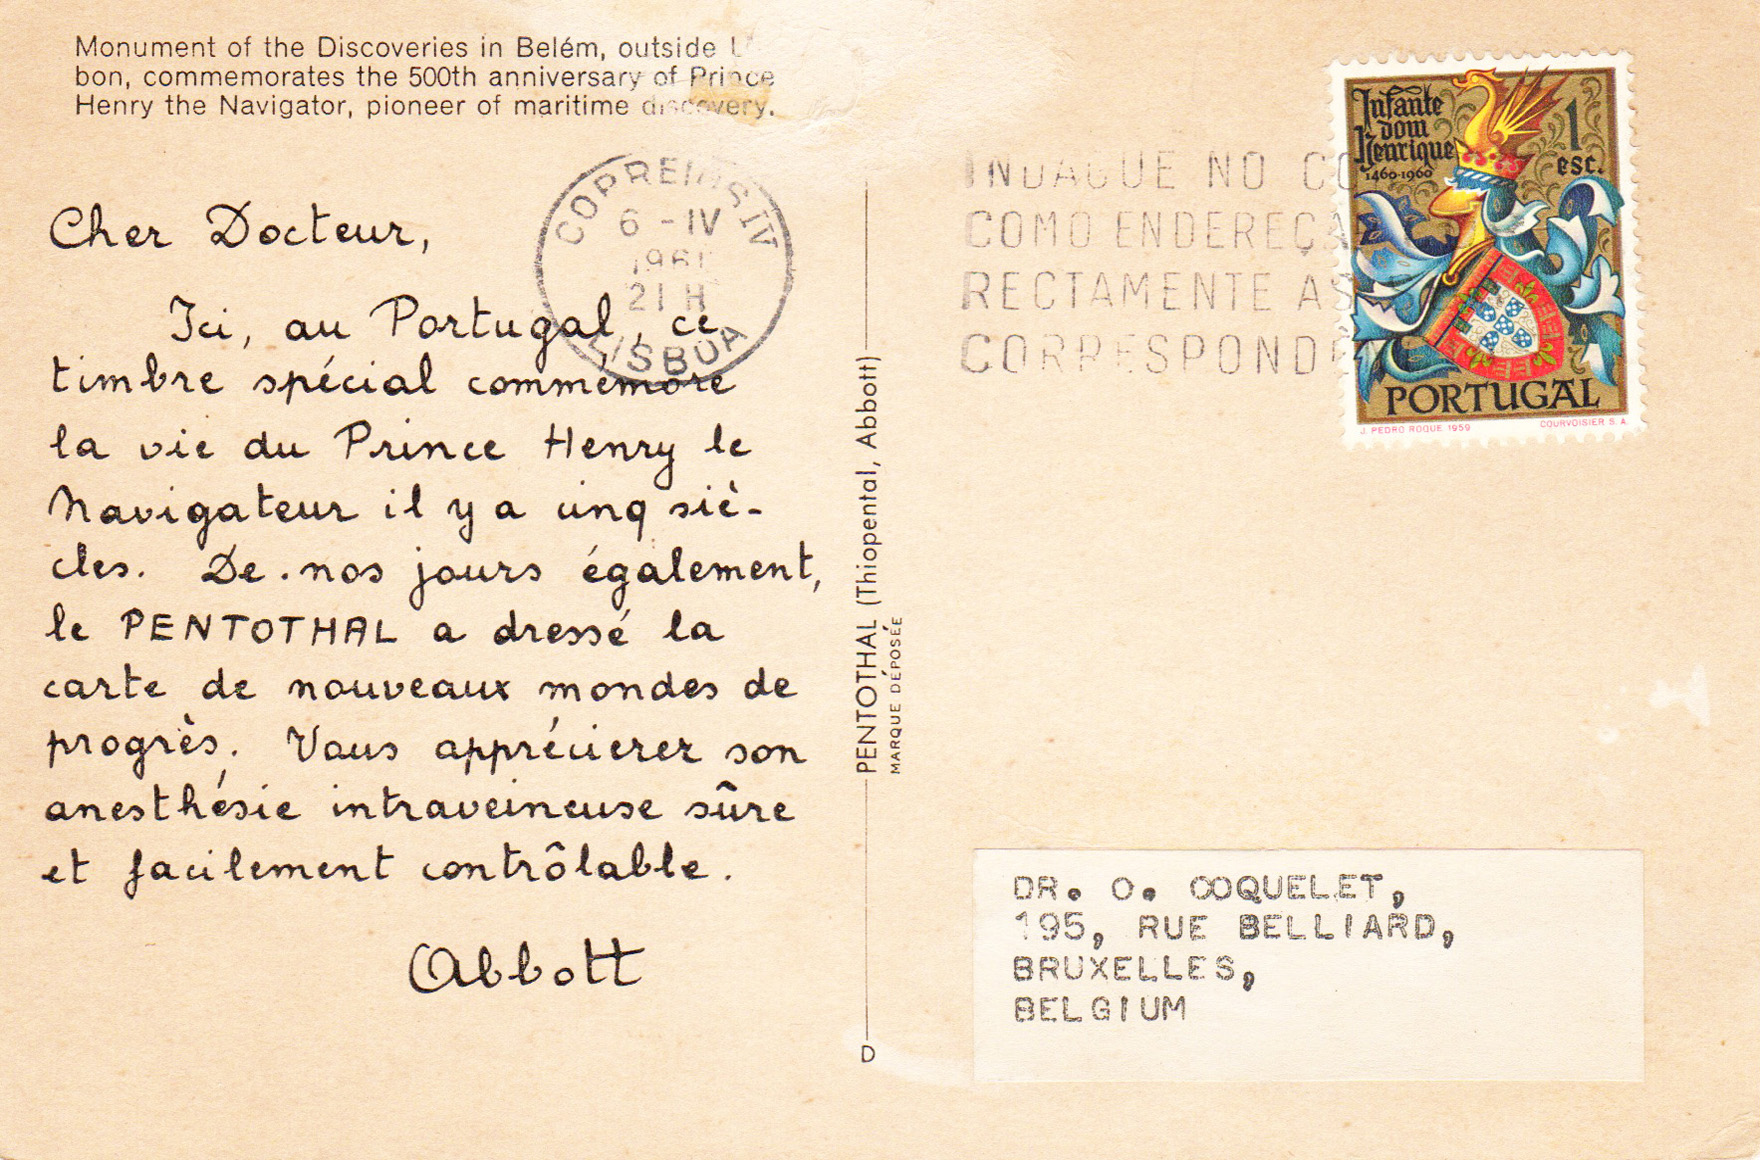 Monument of the Discoveries in Belém, outside
bon, commemorates the 500th anniversary of Prince
Henry the Navigator, pioneer of maritime discovery.
CORREIOS IV
6 - IV
1961
21 H
LISBOA
INDAGUE NO CO
COMO ENDEREÇA
RECTAMENTE AS
CORRESPONDÊ
Infante
dom
Henrique
1460-1960
1
esc.
PORTUGAL
J. PEDRO ROQUE 1959
COURVOISIER S. A.
Cher Docteur,
Ici, au Portugal, ce
timbre spécial commémore
la vie du Prince Henry le
Navigateur il y a cinq siè-
cles. De nos jours également,
le PENTOTHAL a dressé la
carte de nouveaux mondes de
progrès. Vous apprécierez son
anesthésie intraveineuse sûre
et facilement contrôlable.
Abbott
PENTOTHAL (Thiopental, Abbott)
MARQUE DÉPOSÉE
D
DR. O. COQUELET,
195, RUE BELLIARD,
BRUXELLES,
BELGIUM